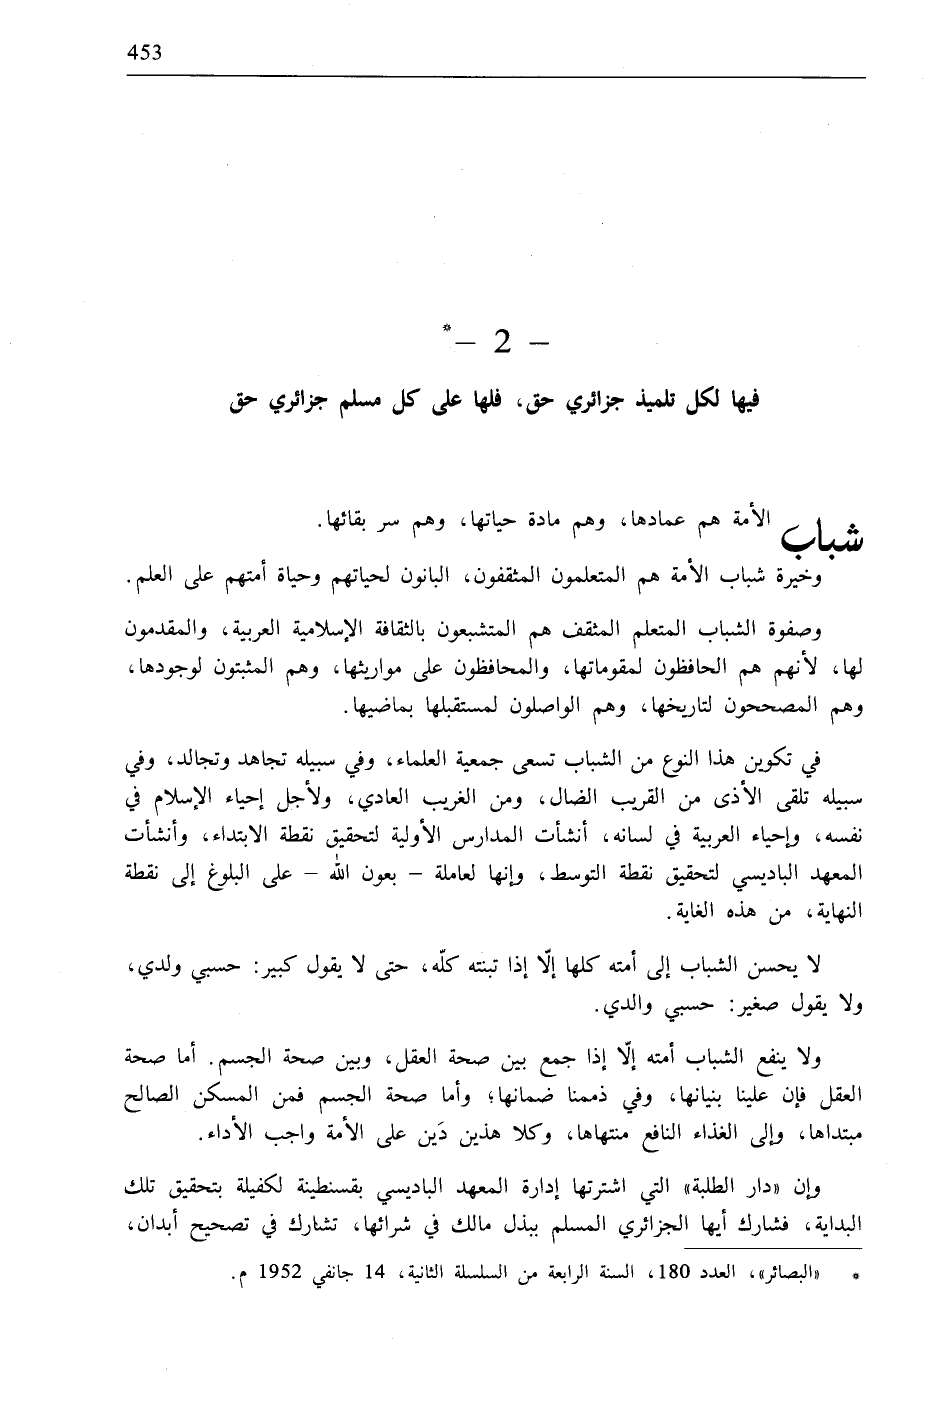 453
– 2 –*
فيها لكل تلميذ جزائري حق، فلها على كل مسلم جزائري حق
شباب الأمة هم عمادها، وهم مادة حياتها، وهم سر بقائها.
وخيرة شباب الأمة هم المتعلمون المثقفون، البانون لحياتهم وحياة أمتهم على العلم.
وصفوة الشباب المتعلم المثقف هم المتشبعون بالثقافة الإسلامية العربية، والمقدمون
لها، لأنهم هم الحافظون لمقوماتها، والمحافظون على مواريثها، وهم المثبتون لوجودها،
وهم المصححون لتاريخها، وهم الواصلون لمستقبلها بماضيها.
في تكوين هذا النوع من الشباب تسعى جمعية العلماء، وفي سبيله تجاهد وتجالد، وفي
سبيله تلقى الأذى من القريب الضال، ومن الغريب العادي، ولأجل إحياء الإسلام في
نفسه، وإحياء العربية في لسانه، أنشأت المدارس الأولية لتحقيق نقطة الابتداء، وأنشأت
المعهد الباديسي لتحقيق نقطة التوسط، وإنها لعاملة – بعون الله – على البلوغ إلى نقطة
النهاية، من هذه الغاية.
لا يحسن الشباب إلى أمته كلها إلّا إذا تبنته كلّه، حتى لا يقول كبير: حسبي ولدي،
ولا يقول صغير: حسبي والدي.
ولا ينفع الشباب أمته إلّا إذا جمع بين صحة العقل، وبين صحة الجسم. أما صحة
العقل فإن علينا بنيانها، وفي ذممنا ضمانها؛ وأما صحة الجسم فمن المسكن الصالح
مبتداها، وإلى الغذاء النافع منتهاها، وكلا هذين دَين على الأمة واجب الأداء.
وإن «دار الطلبة» التي اشترتها إدارة المعهد الباديسي بقسنطينة لكفيلة بتحقيق تلك
البداية، فشارك أيها الجزائري المسلم ببذل مالك في شرائها، تشارك في تصحيح أبدان،
* «البصائر»، العدد 180، السنة الرابعة من السلسلة الثانية، 14 جانفي 1952 م.